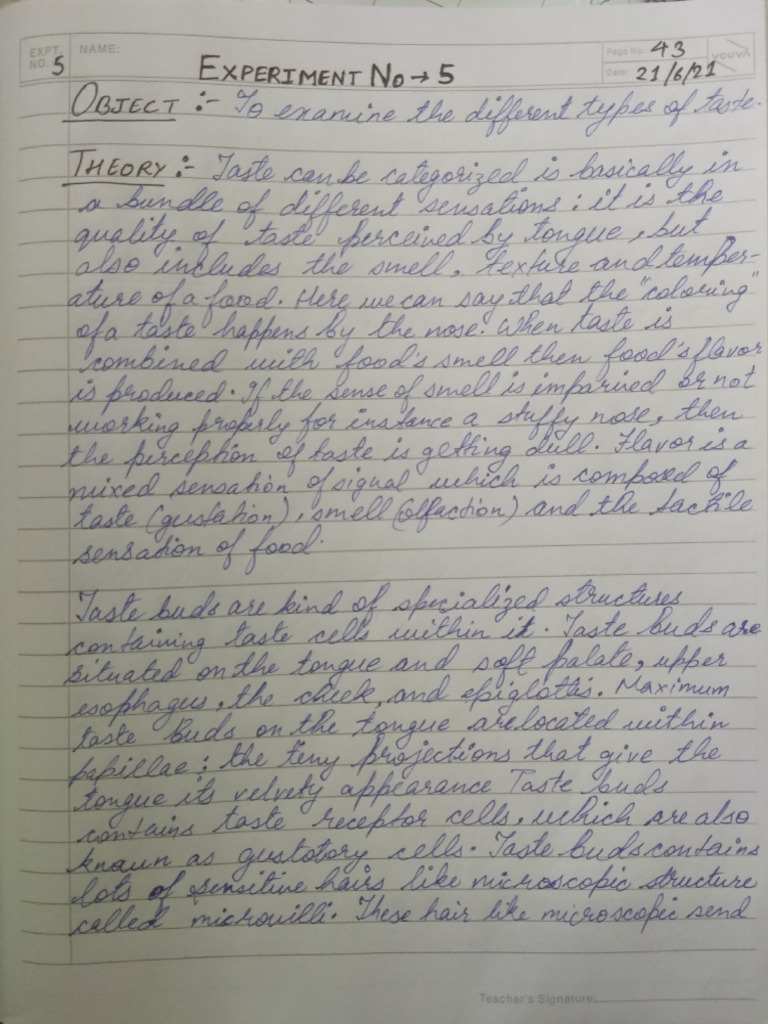 EXPT. NO. 5 NAME: Page No. 43 YOUVA
Date: 21/6/21
EXPERIMENT No → 5
OBJECT :- To examine the different types of taste.
THEORY :- Taste can be categorized is basically in
a bundle of different sensations : it is the
quality of taste perceived by tongue, but
also includes the smell, texture and temper-
ature of a food. Here, we can say that the "coloring"
of a taste happens by the nose. When taste is
combined with food's smell then food's flavor
is produced. If the sense of smell is imparied or not
working properly for instance a stuffy nose, then
the perception of taste is getting dull. Flavor is a
mixed sensation of signal which is composed of
taste (gustation), smell (olfaction) and the tactile
sensation of food.
Taste buds are kind of specialized structures
containing taste cells within it. Taste buds are
situated on the tongue and soft palate, upper
esophagus, the cheek, and epiglottis. Maximum
taste buds on the tongue are located within
papillae : the tiny projections that give the
tongue its velvety appearance Taste buds
contains taste receptor cells, which are also
known as gustotory cells. Taste buds contains
lots of sensitive hairs like microscopic structure
called microvilli. These hair like microscopic send
Teacher's Signature: